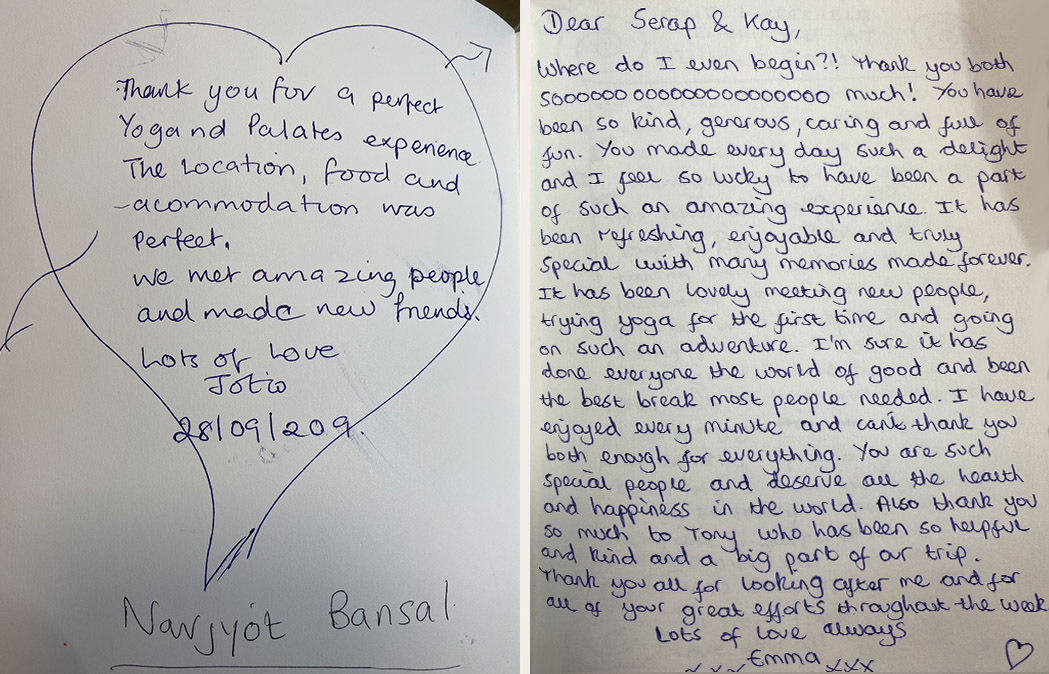 Thank you for a perfect
Yogand Palates experience
The Location, food and
-acommodation was
perfect.
we met amazing people
and made new friends.
Lots of Love
Jotio
28/09/209.
Navjyot Bansal.
Dear Serap & Kay,
Where do I even begin?! Thank you both
sooooooo ooooooooooooooooo much! You have
been so kind, generous, caring and full of
fun. You made every day such a delight
and I feel so lucky to have been a part
of such an amazing experience. It has
been refreshing, enjoyable and truly
special with many memories made forever.
It has been lovely meeting new people,
trying yoga for the first time and going
on such an adventure. I'm sure it has
done everyone the world of good and been
the best break most people needed. I have
enjoyed every minute and can't thank you
both enough for everything. You are such
special people and deserve all the health
and happiness in the world. Also thank you
so much to Tony who has been so helpful
and kind and a big part of our trip.
Thank you all for looking after me and for
all of your great efforts throughout the week
Lots of love always
Emma xxx